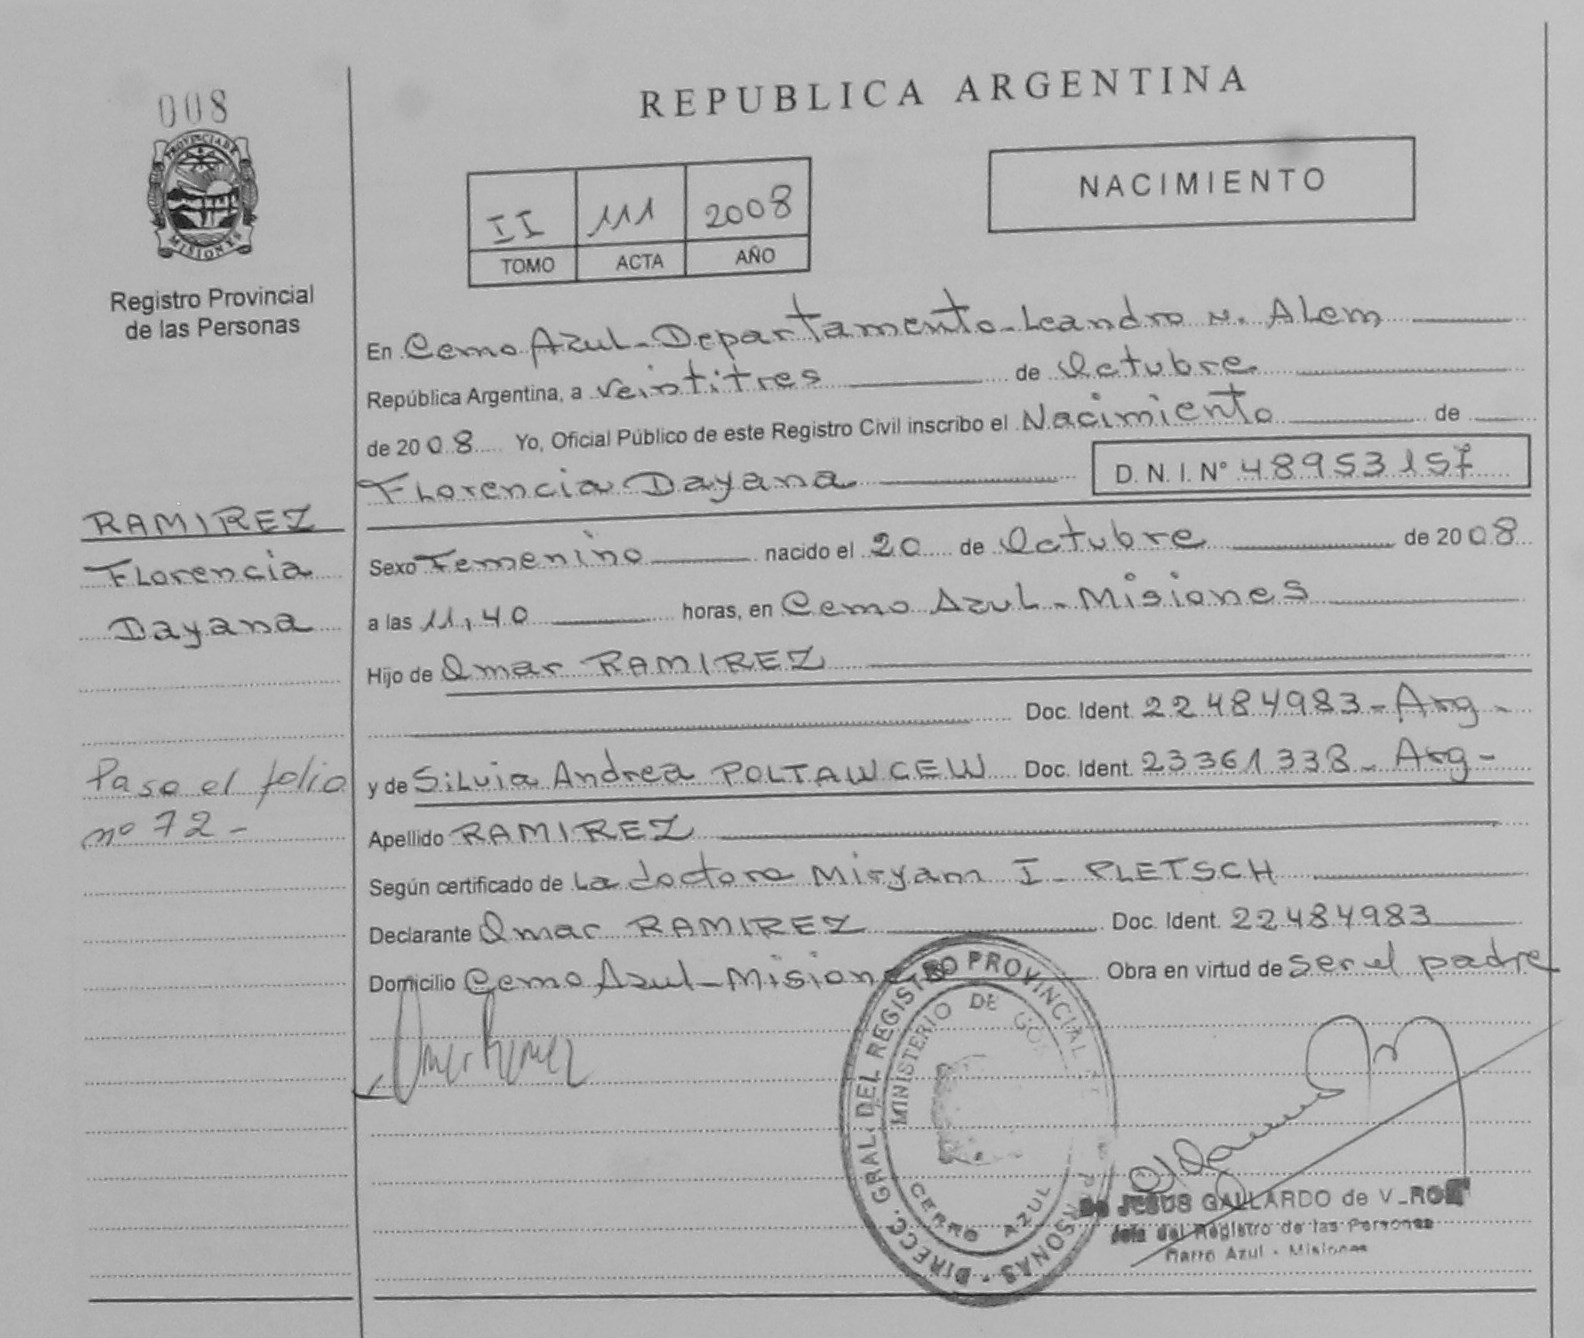 008
PROVINCIA DE
MISIONES
Registro Provincial
de las Personas
REPUBLICA ARGENTINA
NACIMIENTO
II 111 2008
TOMO ACTA AÑO
En Cerro Azul - Departamento - Leandro N. Alem
República Argentina, a veintitres de Octubre
de 2008 Yo, Oficial Público de este Registro Civil inscribo el Nacimiento de
Florencia Dayana D. N. I. N° 48953157
RAMIREZ
Florencia
Dayana
Sexo Femenino nacido el 20 de Octubre de 2008
a las 11,40 horas, en Cerro Azul - Misiones
Hijo de Omar RAMIREZ
Doc. Ident. 22484983 - Arg -
Pase el folio
nº 72 -
y de Silvia Andrea POLTAWCEW Doc. Ident. 23361338 - Arg -
Apellido RAMIREZ
Según certificado de La doctora Miryam I. PLETSCH
Declarante Omar RAMIREZ Doc. Ident. 22484983
Domicilio Cerro Azul - Misiones Obra en virtud de ser el padre
DIRECC. GRAL. DEL REGISTRO PROVINCIAL DE PERSONAS
MINISTERIO DE
CERRO AZUL
JESUS GALLARDO de
Jefa del Registro de las Personas
Cerro Azul - Misiones